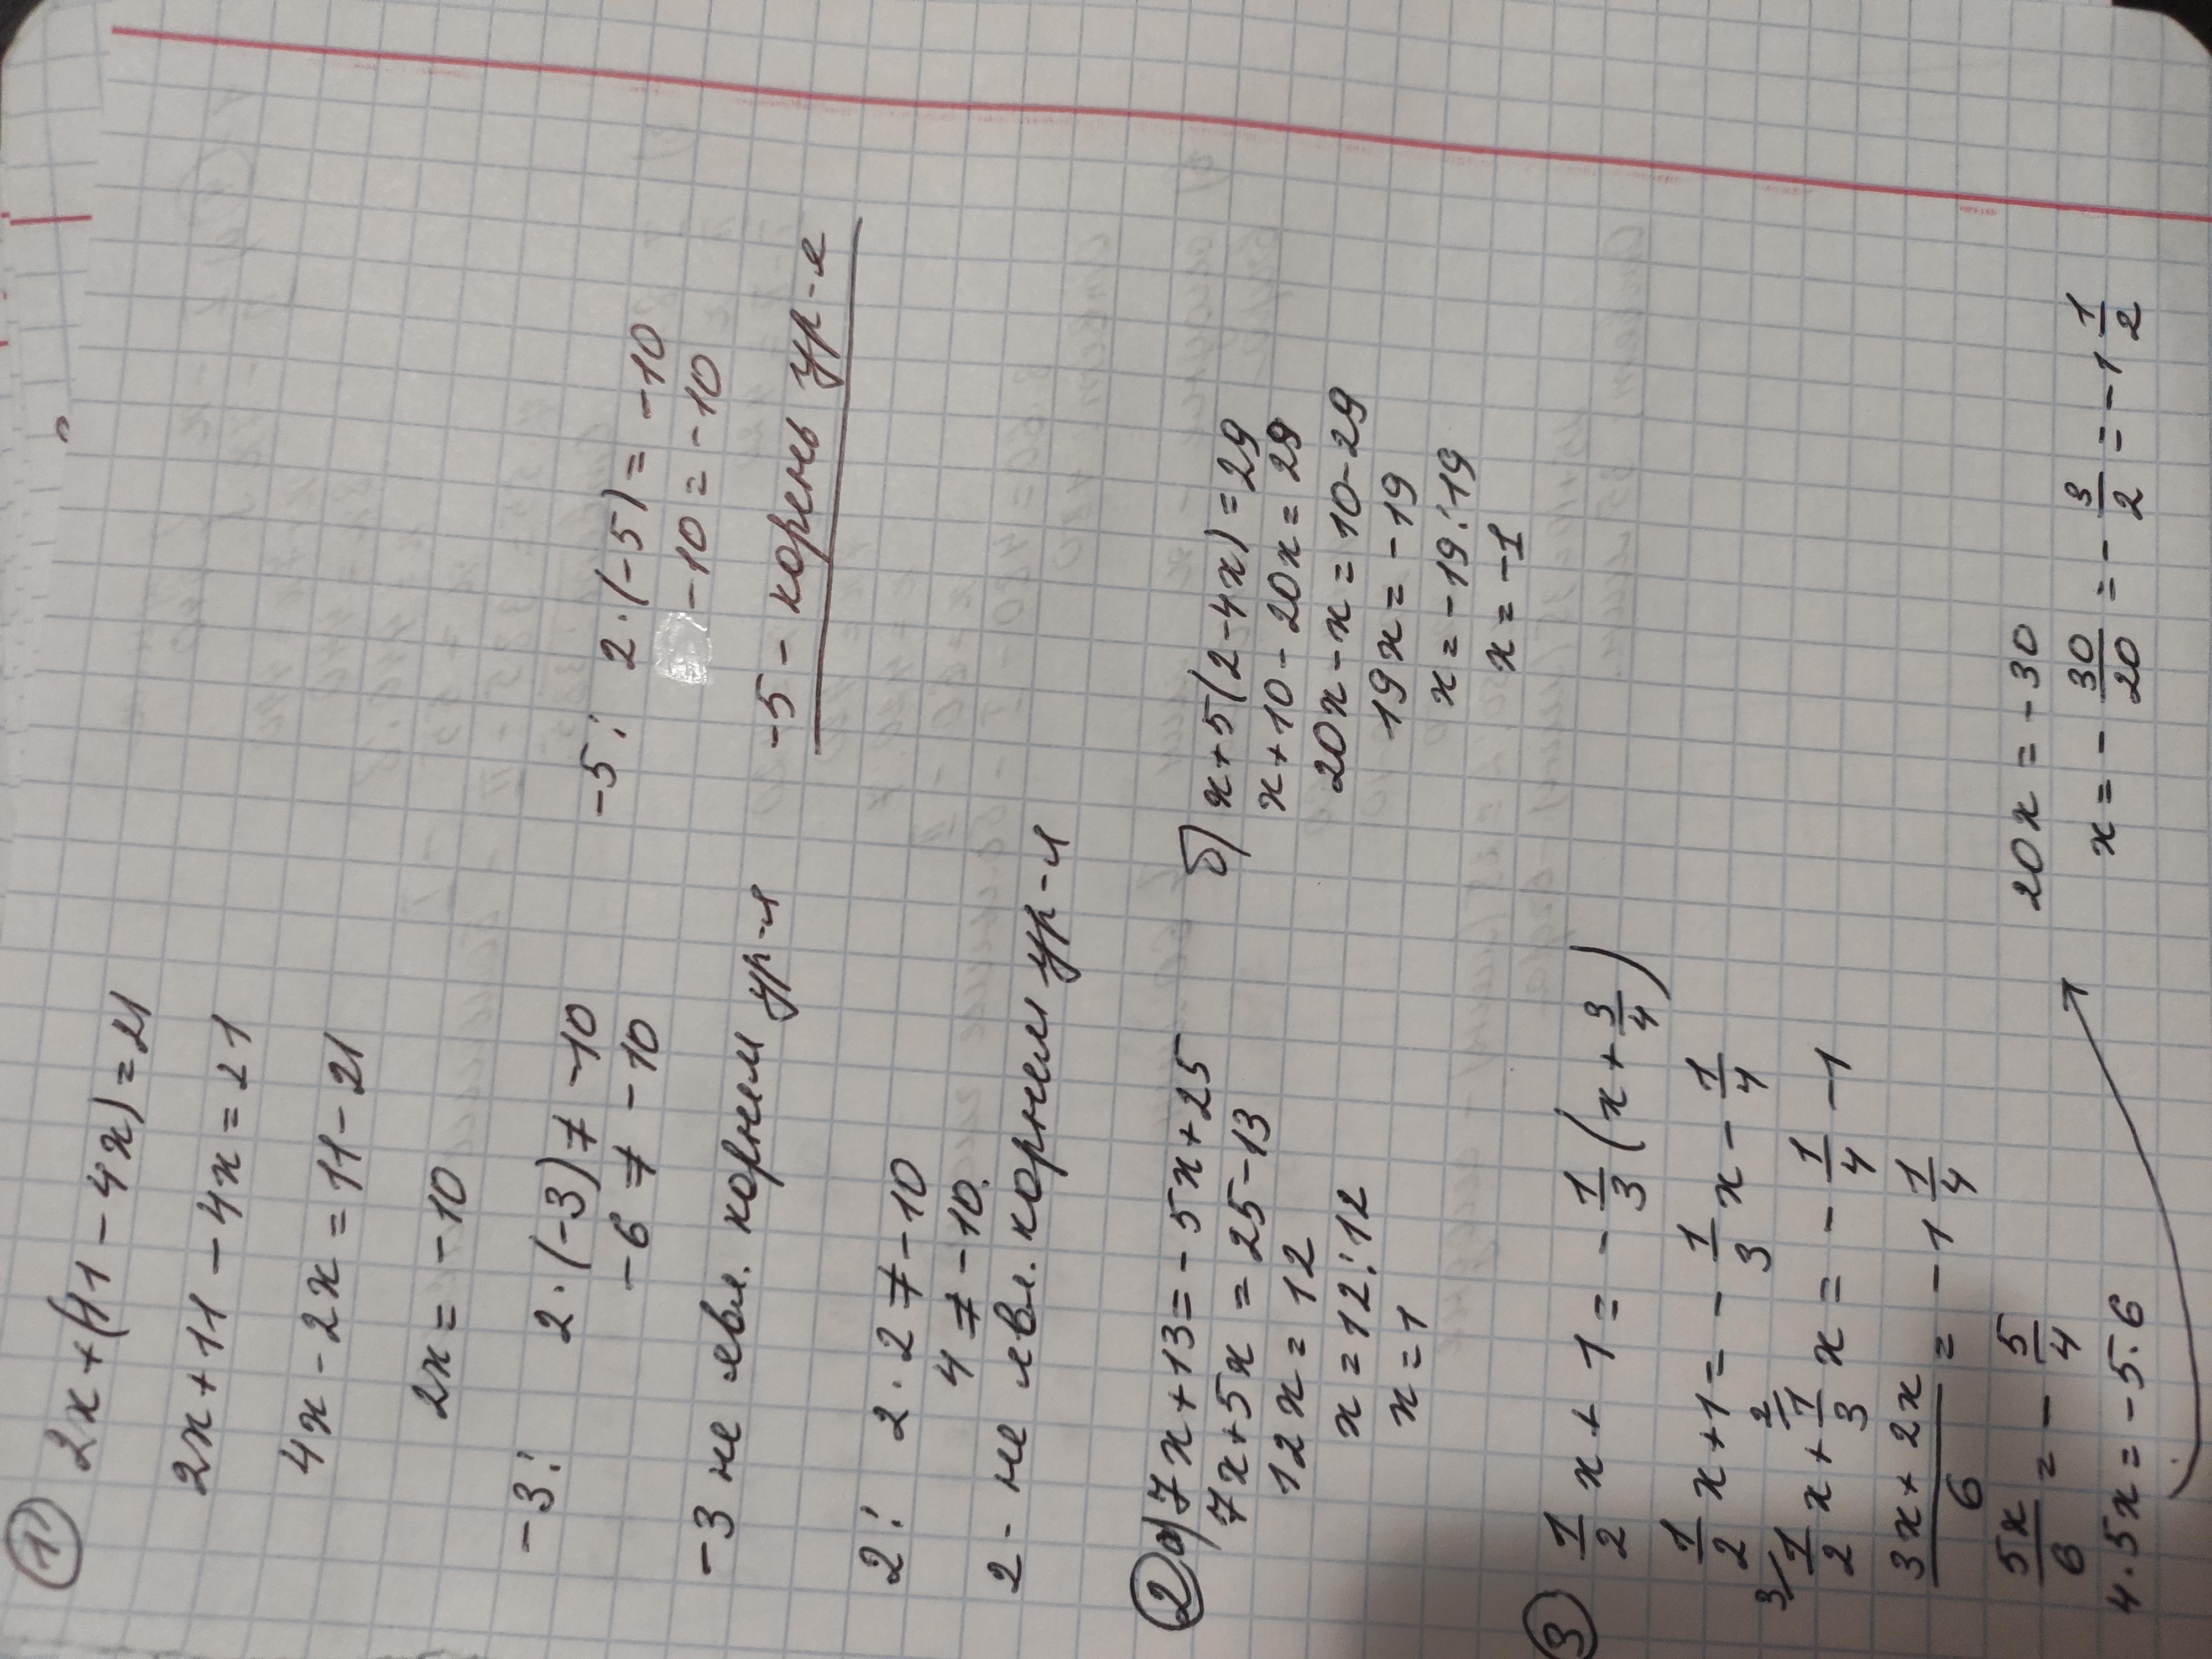 ① 2x+(11-4x)=21
2x+11-4x=21
4x-2x=11-21
2x=-10
-3: 2·(-3)≠-10
-6≠-10
-3 не явл. корнем ур-я
2: 2·2≠-10
4≠-10.
2- не явл. корнем ур-я
-5: 2·(-5)=-10
-10=-10
-5 - корень ур-я
② а) 7x+13=-5x+25
7x+5x=25-13
12x=12
x=12:12
x=1
б) x+5(2-4x)=29
x+10-20x=29
20x-x=10-29
19x=-19
x=-19:19
x=-1
③ 1/2 x+1=-1/3(x+3/4)
1/2 x+1=-1/3 x-1/4
3/ 1/2 x+ 2/ 1/3 x=-1/4-1
3x+2x/6=-1 1/4
5x/6=-5/4
4·5x=-5·6
20x=-30
x=-30/20=-3/2=-1 1/2